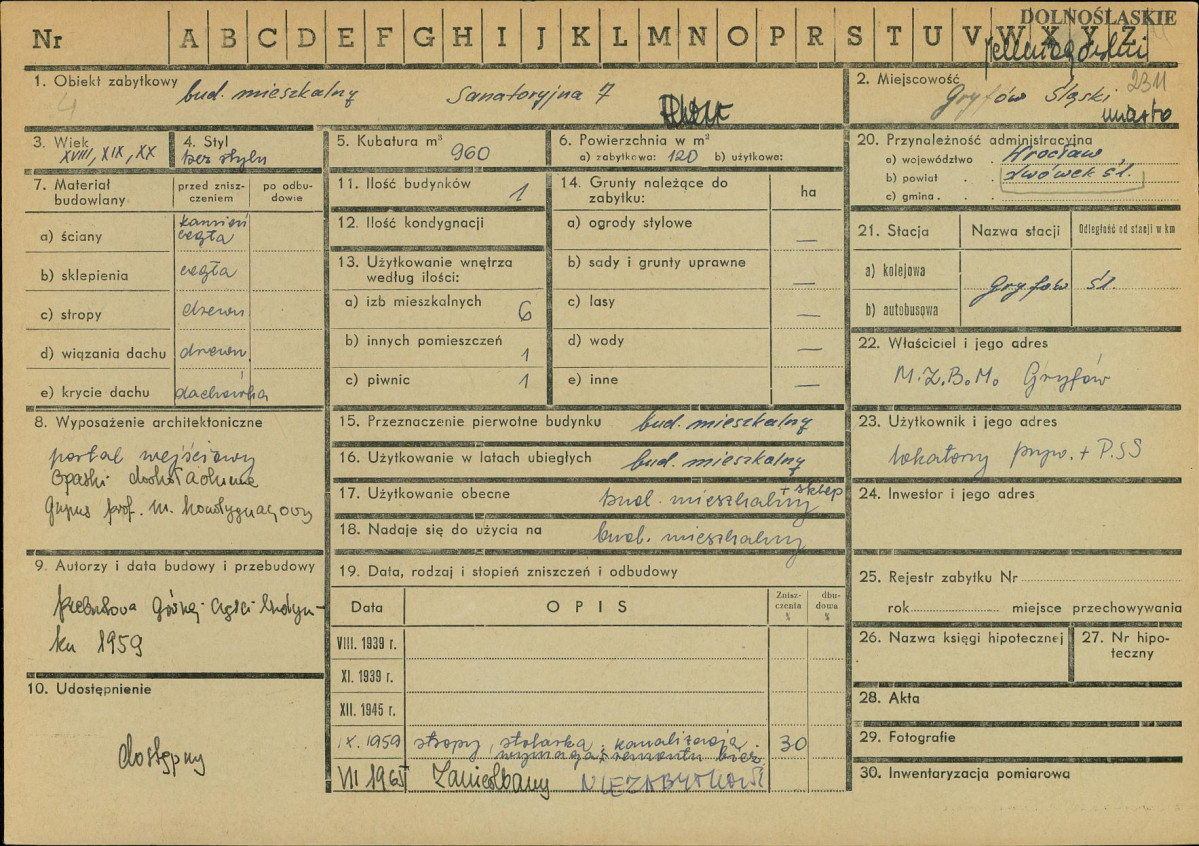 DOLNOŚLĄSKIE
Nr A B C D E F G H I J K L M N O P R S T U V W X Y Z
jeleniogórski
1. Obiekt zabytkowy bud. mieszkalny Sanatoryjna 7
4
2. Miejscowość 2311
Gryfów Śląski
miasto
3. Wiek XVIII, XIX, XX
4. Styl bez stylu
5. Kubatura m³ 960
6. Powierzchnia w m²
a) zabytkowa: 120 b) użytkowa:
7. Materiał budowlany
przed zniszczeniem
po odbudowie
a) ściany kamień cegła
b) sklepienia cegła
c) stropy drewn
d) wiązania dachu drewn
e) krycie dachu dachówka
8. Wyposażenie architektoniczne
portal wejściowy
opaski dookoła okienne
9. Autorzy i data budowy i przebudowy
przebudowa górnej części budyn-
ku 1959
10. Udostępnienie
dostępny
11. Ilość budynków 1
12. Ilość kondygnacji
13. Użytkowanie wnętrza
według ilości:
a) izb mieszkalnych 6
b) innych pomieszczeń 1
c) piwnic 1
14. Grunty należące do
zabytku: ha
a) ogrody stylowe —
b) sady i grunty uprawne —
c) lasy —
d) wody —
e) inne —
15. Przeznaczenie pierwotne budynku bud. mieszkalny
16. Użytkowanie w latach ubiegłych bud. mieszkalny
17. Użytkowanie obecne bud. mieszkalny + sklep
18. Nadaje się do użycia na bud. mieszkalny
19. Data, rodzaj i stopień zniszczeń i odbudowy
Data OPIS Znisz-
czenia
%
dbu-
dowa
%
VIII. 1939 r.
XI. 1939 r.
XII. 1945 r.
IX. 1959 stropy, stolarka, kanalizacja 30
wymaga remontu bież.
VII 1965 Zaniedbany NIEZABYTKOWY
20. Przynależność administracyjna
a) województwo Wrocław
b) powiat Lwówek Śl.
c) gmina
21. Stacja Nazwa stacji Odległość od stacji w km
a) kolejowa
Gryfów Śl.
b) autobusowa
22. Właściciel i jego adres
M.Z.B.M. Gryfów
23. Użytkownik i jego adres
lokatorzy pryw. + PSS
24. Inwestor i jego adres
25. Rejestr zabytku Nr
rok miejsce przechowywania
26. Nazwa księgi hipotecznej
27. Nr hipo-
teczny
28. Akta
29. Fotografie
30. Inwentaryzacja pomiarowa